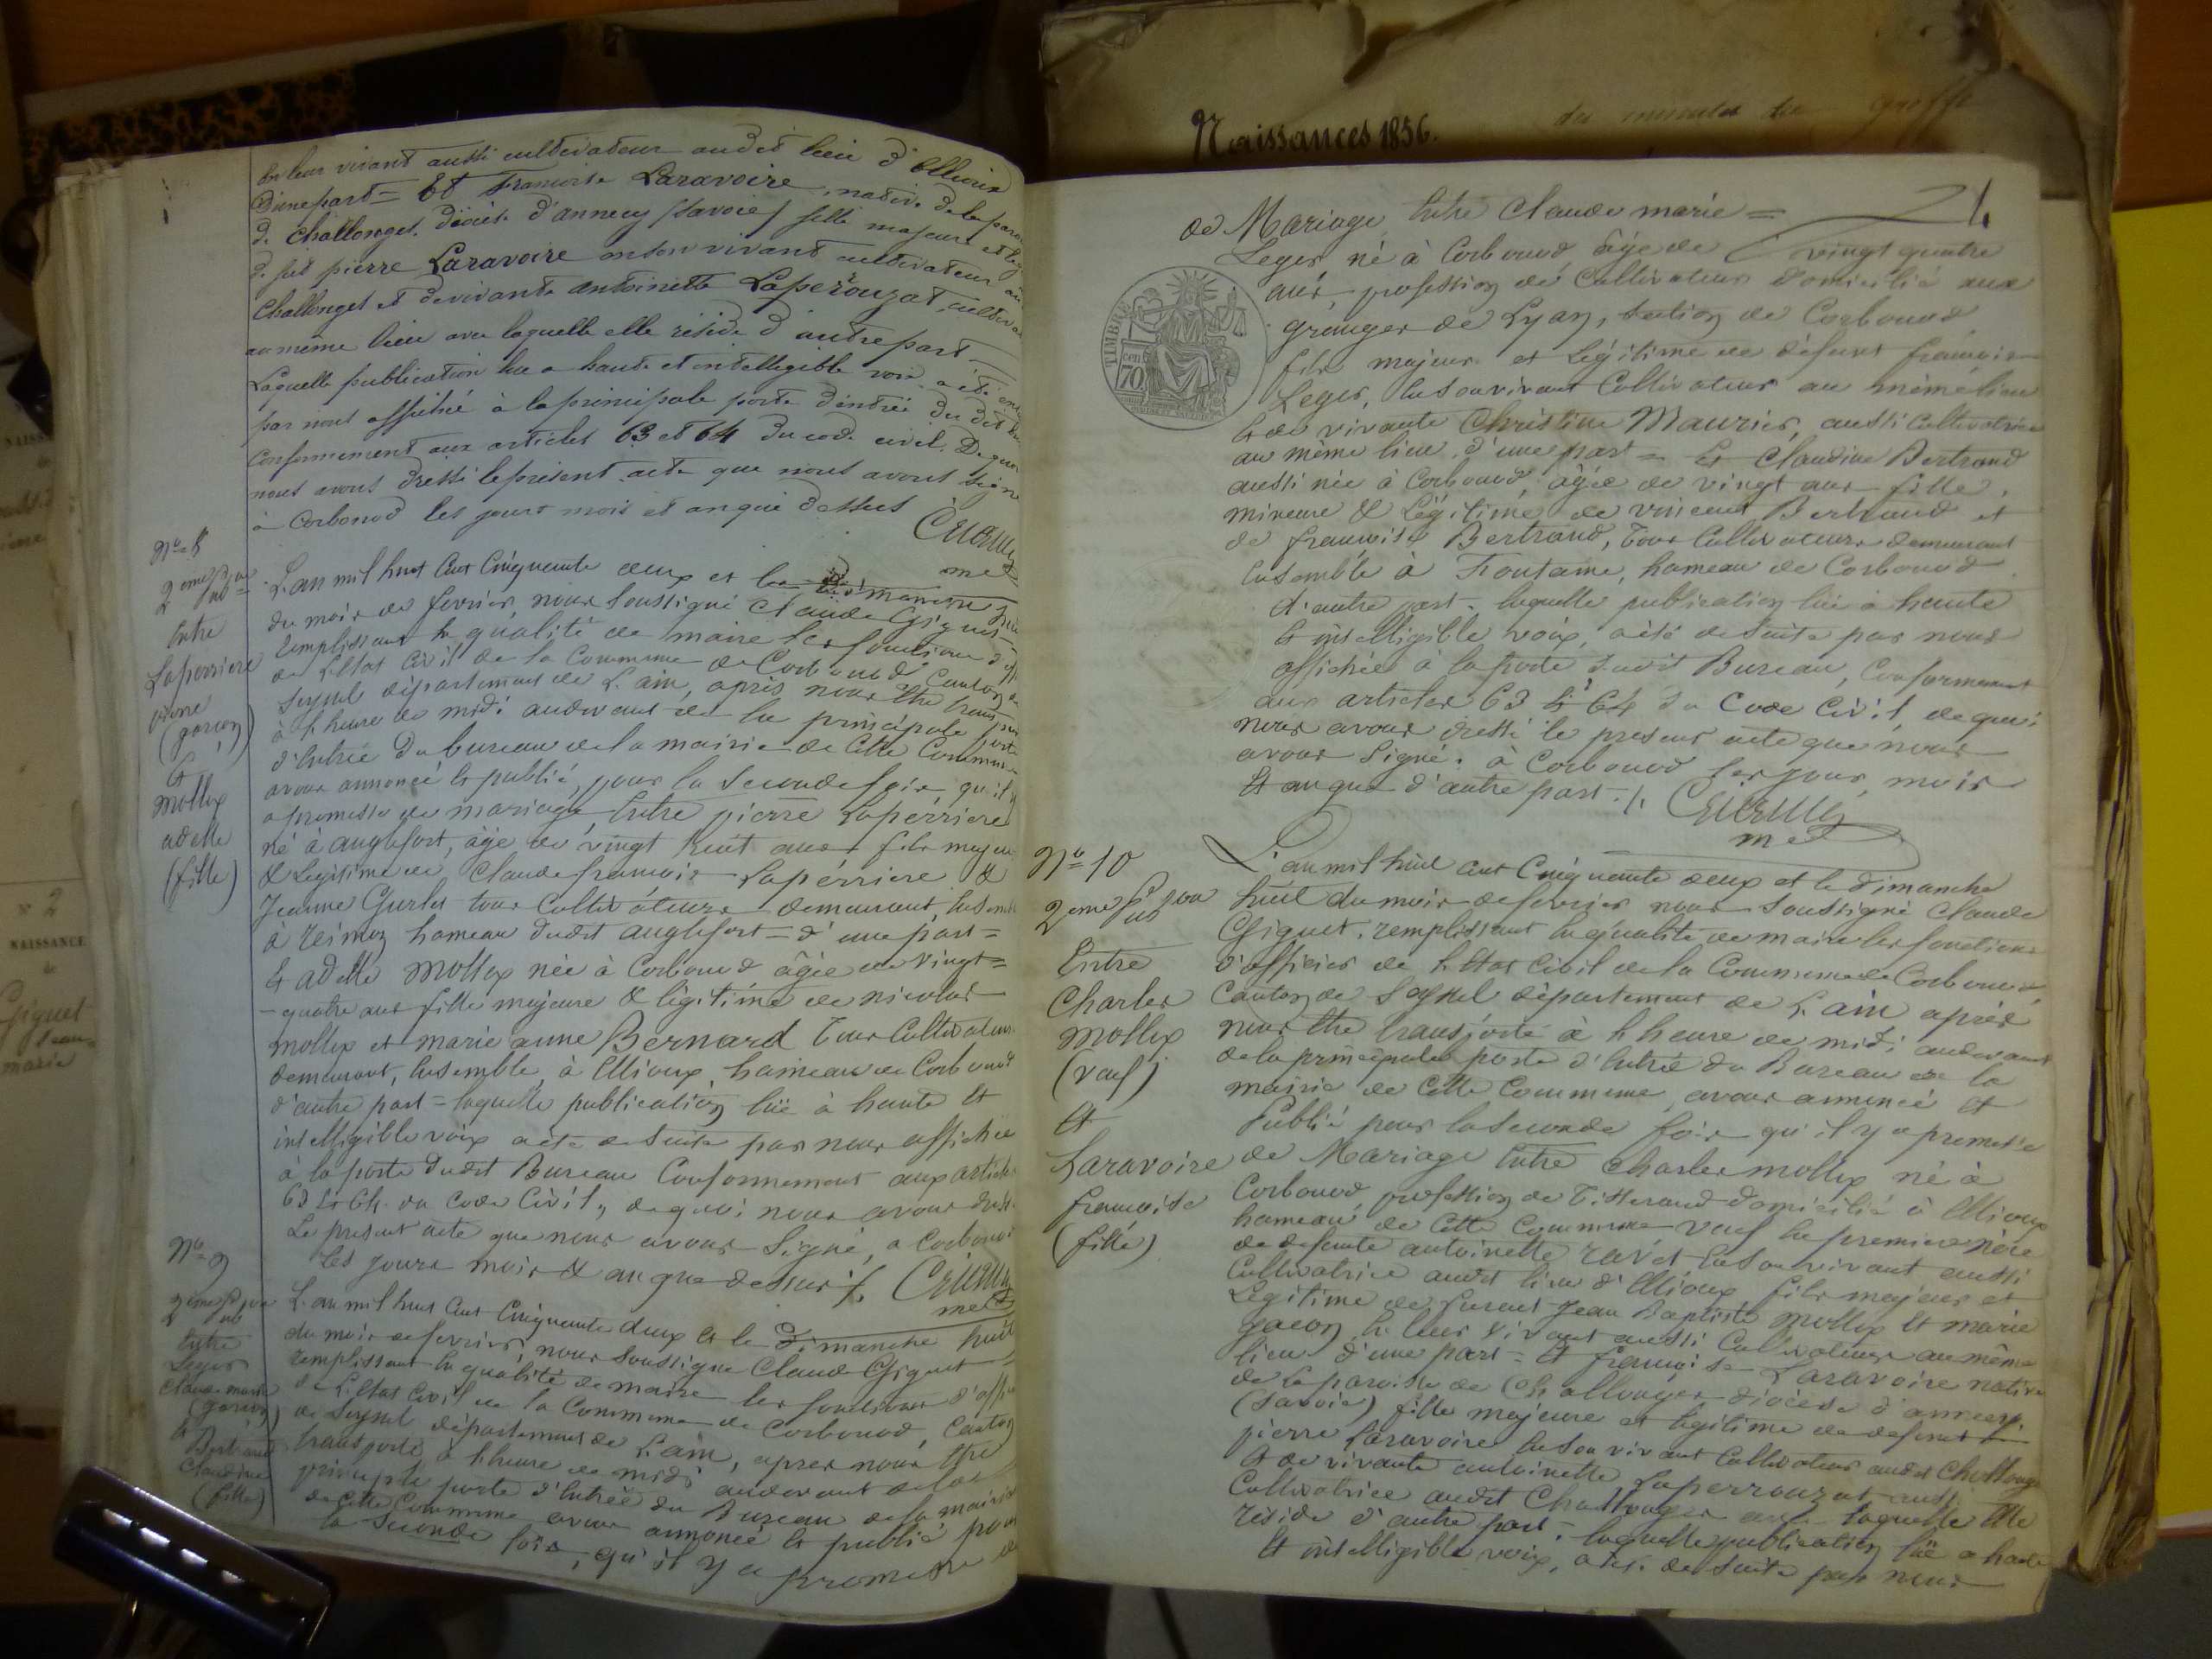 en leur vivant aussi cultivateur audit lieu d'Ellioux
d'une part = Et Francoise Laravoire, native de la paroi
de Challonges, diocèse d'annecy (Savoie) fille majeure et leg
de feu pierre Laravoire en son vivant cultivateur au
Challonges et de vivante antoinette Laperouzat, cultiva
au même lieu avec laquelle elle réside d'autre part
Laquelle publication lue a haute et intelligible voix a été
par nous affiché à la principale porte d'entrée du dit
Conformement aux articles 63 et 64 du code civil. De quoi
nous avons dressé le présent acte que nous avons signé
à Corbonod les jours mois et an que dessus
me
2eme pub
Entre
Laperriere
pierre
(garçon)
Et
Mollex
adelle
(fille)
L'an mil huit Cent Cinquante deux et le dimanche
du mois de fevrier, nous soussigné Claude Gignet
remplissant la qualité de maire les fonctions d'off
de L'Etat Civil de la Commune de Corbonod Canton de
Seyssel département de L'ain, après nous être transpor
à l'heure de midi audevant de la principale porte
d'Entrée du bureau de la mairie de Cette Commune
avons annoncé et publié, pour la Seconde fois qu'il y
a promesse de mariage, Entre pierre Laperrière
né à anglefort, âgé de vingt huit ans fils majeu
& Legitime de Claude françois Lapérriere &
Jeanne Gurlet tous Cultivateurs demeurant, Ensemb
à reimoz hameau dudit anglefort = d'une part =
Et adelle Mollex née à Corbonod âgée de vingt=
-quatre ans fille majeure & légitime de nicolas
mollex et marie anne Bernard tous Cultivateurs
demeurant, Ensemble, à Ellioux, hameau de Corbonod
d'autre part = laquelle publication lüe à haute Et
intelligible voix a été de Suite par nous affichée
à la porte dudit Bureau Conformement aux article
63 Et 64 du Code Civil, de quoi nous avons dressé
Le present acte que nous avons Signé, a Corbonod
les jours mois & an que dessus ./.
me
N° 9
2eme pub
Entre
Leger
Claude marie
(garçon)
Et
Bertrand
Claudine
(fille)
L'an mil huit Cent Cinquante deux Et le Dimanche huit
du mois de fevrier, nous soussigné Claude Gignet
remplissant la qualité de maire les fonctions d'offi
de L'Etat Civil de la Commune de Corbonod, Canton
de Seyssel département de L'ain, apres nous être
transporté à l'heure de midi audevant de la
principale porte d'Entrée du Bureau de la mairie
de Cette Commune avons annoncé et publié pour
la Seconde fois, qu'il y a promesse
Naissances 1856.
de Mariage Entre Claude marie =
Leger né à Corbonod âgé de vingt quatre
ans, profession de Cultivateur Domicilié aux
granges de Lyan, Section de Corbonod
fils majeur et Légitime de défunt françois
Leger, En son vivant Cultivateur au même lieu
Et de vivante Christine Maurier, aussi Cultivatrice
au même lieu, d'une part = Et Claudine Bertrand
aussi née à Corbonod, âgée de vingt ans fille,
mineure & Légitime de vincent Bertrand et
de françoise Bertrand, Tous Cultivateurs demeurant
Ensemble à Fontaine, hameau de Corbonod
d'autre part. laquelle publication lüe à haute
Et intelligible voix, a été de Suite par nous
affichée à la porte dudit Bureau, Conformement
aux articles 63 Et 64 du Code Civil, de quoi
nous avons dressé le present acte que nous
avons Signé. à Corbonod les jour, mois
Et an que d'autre part ./.
me
TIMBRE
70
N° 10
2eme pub
Entre
Charles
mollex
(veuf)
Et
Laravoire
françoise
(fille)
L'an mil huit Cent Cinquante deux et le dimanche
huit du mois de fevrier nous soussigné Claude
Gignet, remplissant la qualité de maire les fonctions
d'officier de L'Etat Civil de la Commune de Corbonod
Canton de Seyssel département de L'ain après
nous être transporté à l'heure de midi audevant
de la principale porte d'Entrée du Bureau de la
mairie de Cette Commune, avons annoncé Et
Publié pour la Seconde fois qu'il y a promesse
de Mariage Entre Charles mollex né à
Corbonod profession de Tisserand domicilié à Ellioux
hameau de Cette Commune veuf En premiere nôce
de defunte antoinette ravet, En son vivant aussi
Cultivatrice audit lieu d'Ellioux fils majeur et
Legitime de furent Jean Baptiste mollex Et marie
gacon En leur vivant aussi Cultivateurs au même
lieu d'une part = Et françoise Laravoire native
de la paroisse de Challonges diocèse d'annecy.
(Savoie) fille majeure et légitime de defunt
pierre Laravoire En son vivant Cultivateur audit Challonges
Et de vivante antoinette Laperrouzat aussi
Cultivatrice audit Challonges avec laquelle Elle
réside d'autre part = laquelle publication lüe a haute
Et intelligible voix, a été de Suite par nous